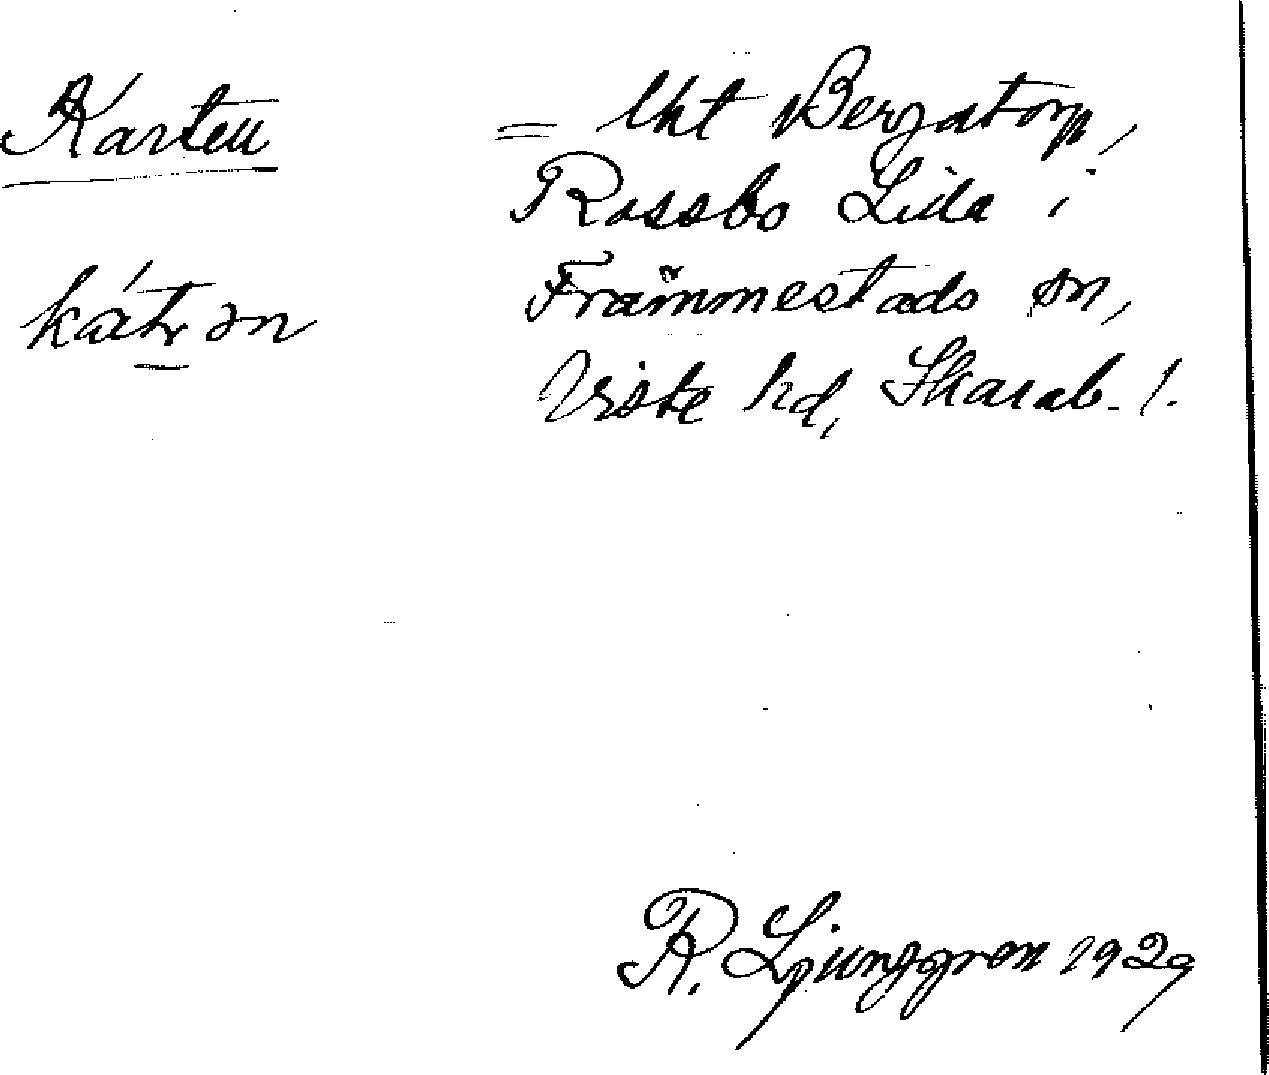 Karten
= lht Bergatorp,
Rossbo Lida i
Främmestads sn,
Viste hd, Skarab. l.
R. Ljunggren 1929